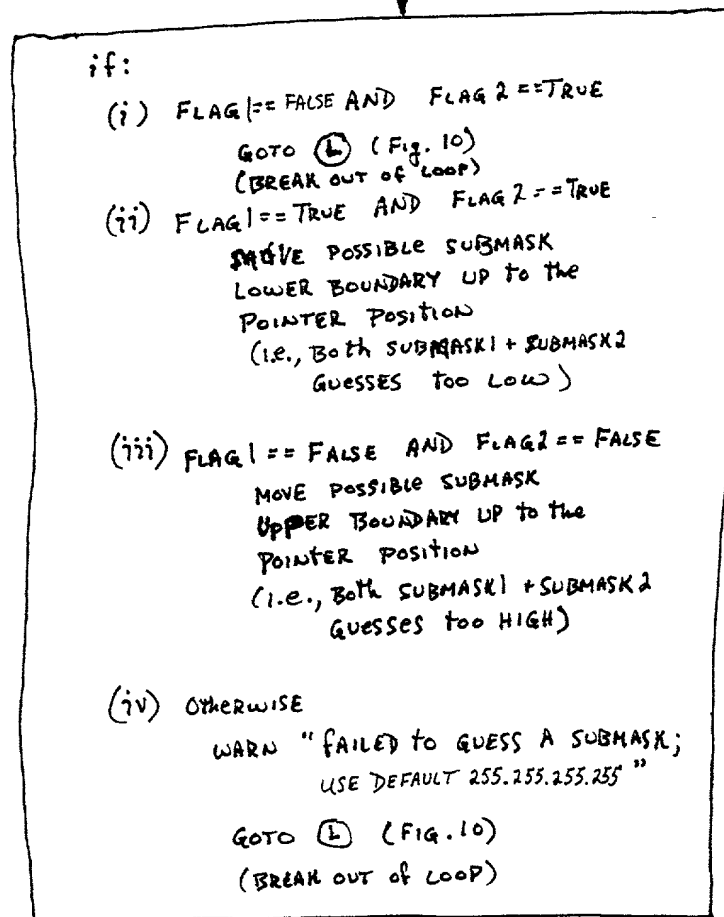 if:
(i) FLAG1 == FALSE AND FLAG2 == TRUE
GOTO Ⓛ (Fig. 10)
(BREAK OUT OF LOOP)
(ii) FLAG1 == TRUE AND FLAG2 == TRUE
MOVE POSSIBLE SUBMASK
LOWER BOUNDARY UP to the
POINTER POSITION
(i.e., Both SUBMASK1 + SUBMASK2
GUESSES too LOW)
(iii) FLAG1 == FALSE AND FLAG2 == FALSE
MOVE POSSIBLE SUBMASK
UPPER BOUNDARY UP to the
POINTER POSITION
(i.e., Both SUBMASK1 + SUBMASK2
GUESSES too HIGH)
(iv) OTHERWISE
WARN "FAILED to GUESS A SUBMASK;
USE DEFAULT 255.255.255.255"
GOTO Ⓛ (FIG. 10)
(BREAK OUT of LOOP)